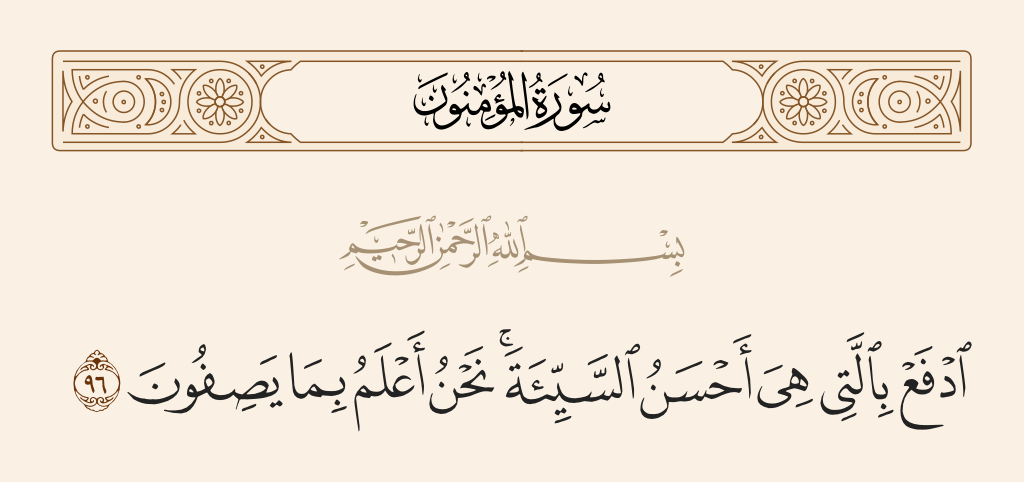 سُورَةُ المُؤْمِنُونَ
بِسْمِ ٱللَّهِ ٱلرَّحْمَٰنِ ٱلرَّحِيمِ
ٱدْفَعْ بِٱلَّتِى هِىَ أَحْسَنُ ٱلسَّيِّئَةَ ۚ نَحْنُ أَعْلَمُ بِمَا يَصِفُونَ ٩٦